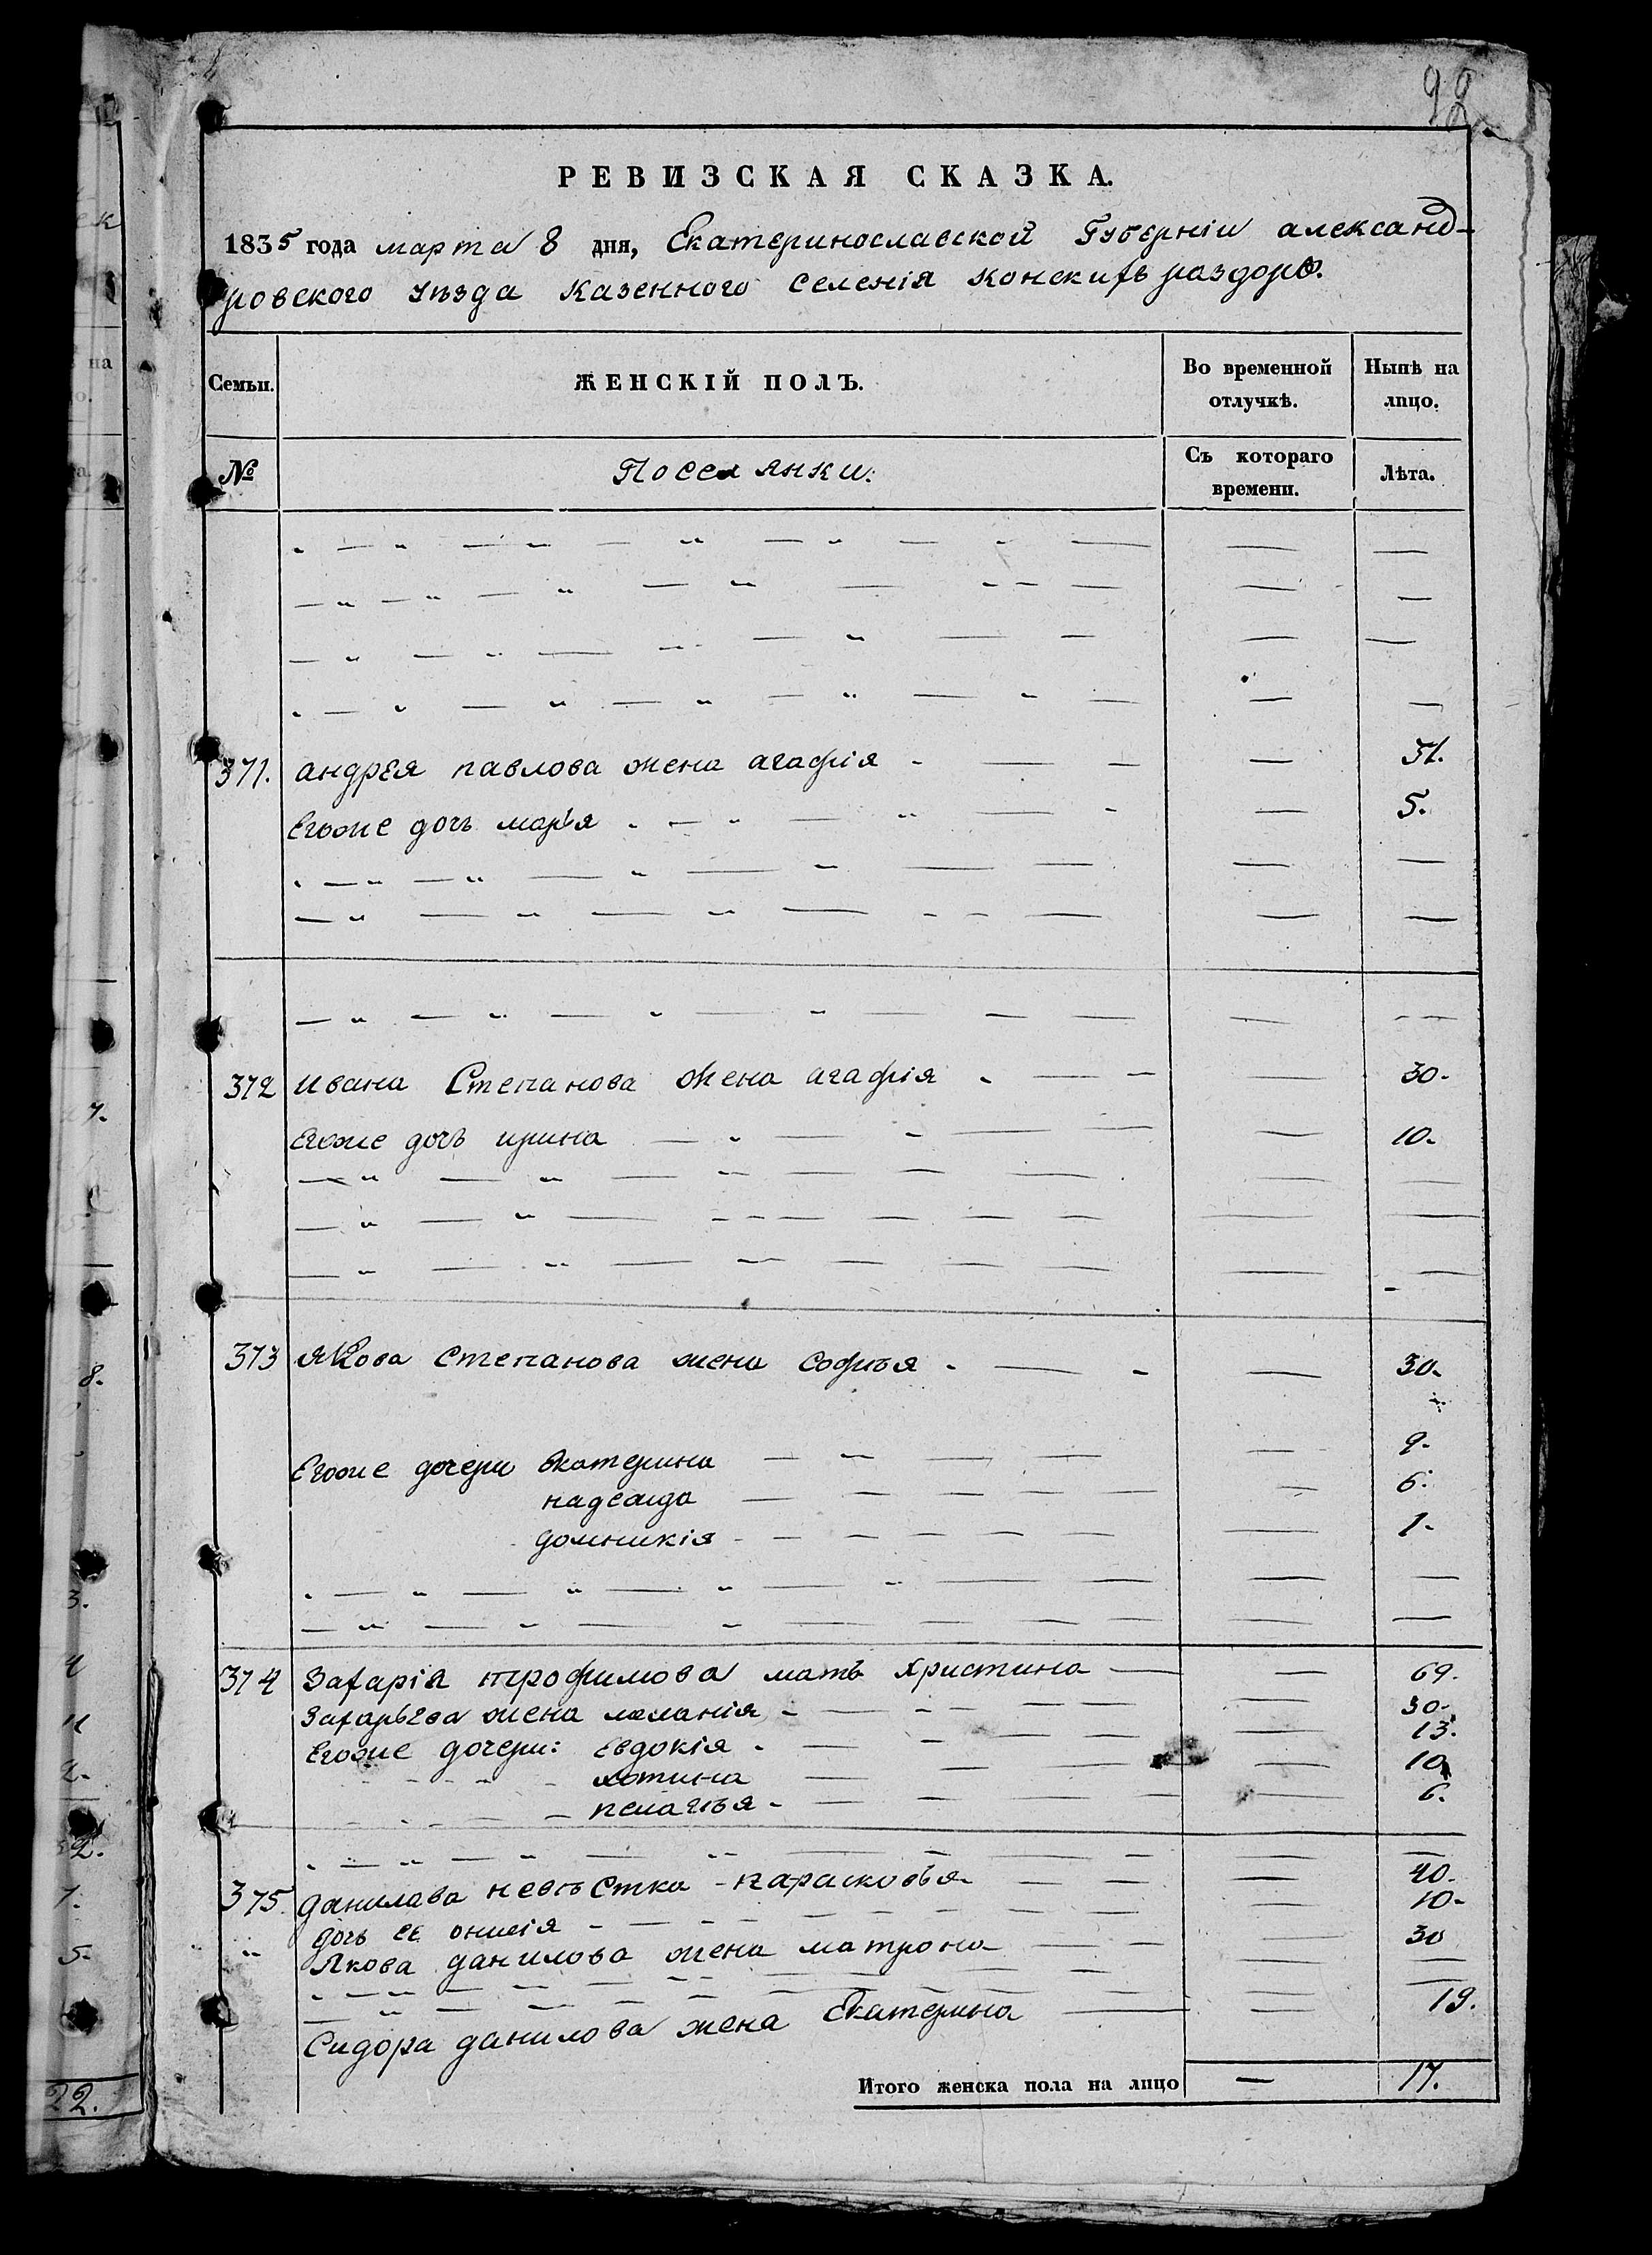 92
РЕВИЗСКАЯ СКАЗКА.
1835 года марта 8 дня, Екатеринославской Губернiи александ-
ровского уѣзда казенного селенiя конскихъ раздоръ.
Семьи. ЖЕНСКIЙ ПОЛЪ. Во временной отлучкѣ. Нынѣ на лицо.
№ Поселянки: Съ котораго времени. Лѣта.
371. андрея павлова жена агафiя - — 31.
Егоже дочь марья — 5.
372 ивана Степанова жена агафiя - — 30.
Егоже дочь ирина — 10.
373 якова степанова жена софья - — 30.
Егоже дочери екатерина — 9.
надежда — 6.
домникiя — 1.
374 Захарiя трофимова мать христина — 69.
Захарьева жена маланiя - — 30.
Егоже дочери: евдокiя - — 13.
хотина — 10
пелагья - — 6.
375. данилава невѣстка - парасковья — 40.
дочь ее онисiя — 10.
Якова данилова жена матрона — 30
Сидора данилова жена Екатерина — 19.
Итого женска пола на лицо — 17.
22.